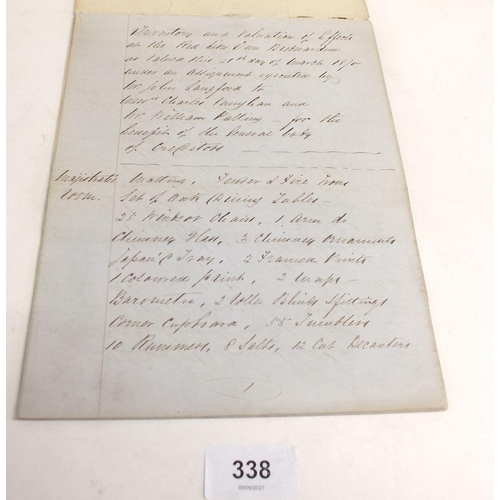 Inventory and Valuation of Effects
at the Red Lion Inn
as Valued this 21st day of March 1870
under an Assignment executed by
Mr John Langford to
Messrs Charles Vaughan and
Mr William Palling – for the
benefit of the General body
of Creditors
Magistrates Room. Matting, Fender & Fire Irons
Set of Oak Dining Tables –
25 Windsor Chairs, 1 Arm do
Chimney Glass, 3 Chimney Ornaments
Japan'd Tray, 2 Framed Prints
1 Coloured print, 2 Maps –
Barometer, 2 Roller Blinds & fittings
Corner Cupboard, 55 Tumblers
10 Rummers, 8 Salts, 12 Cut Decanters
1
338
05/09/2021